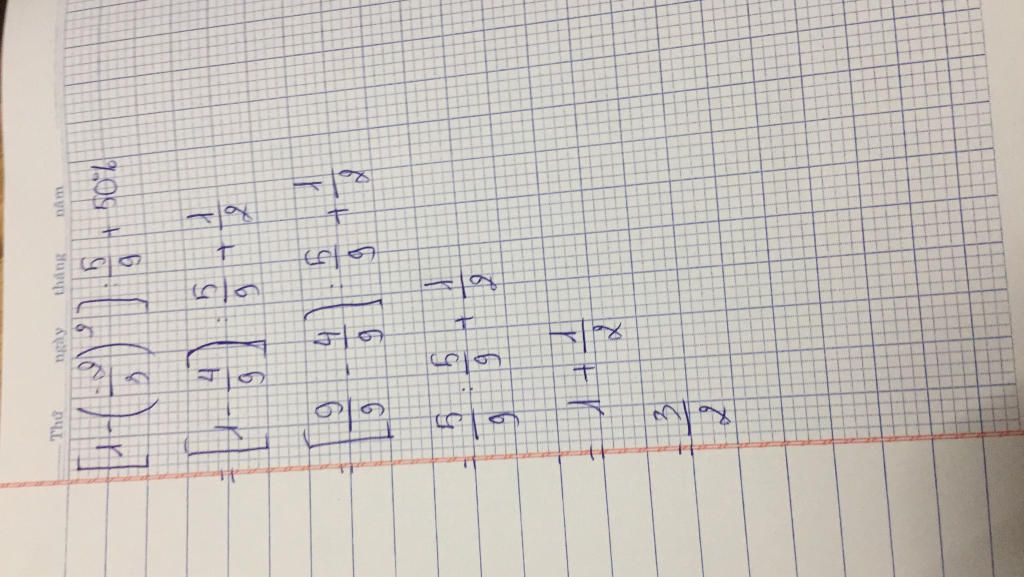 Thứ ngày tháng năm
[1 - (-2/3)²] : 5/9 + 50%
= [1 - 4/9] : 5/9 + 1/2
= [9/9 - 4/9] : 5/9 + 1/2
= 5/9 : 5/9 + 1/2
= 1 + 1/2
= 3/2